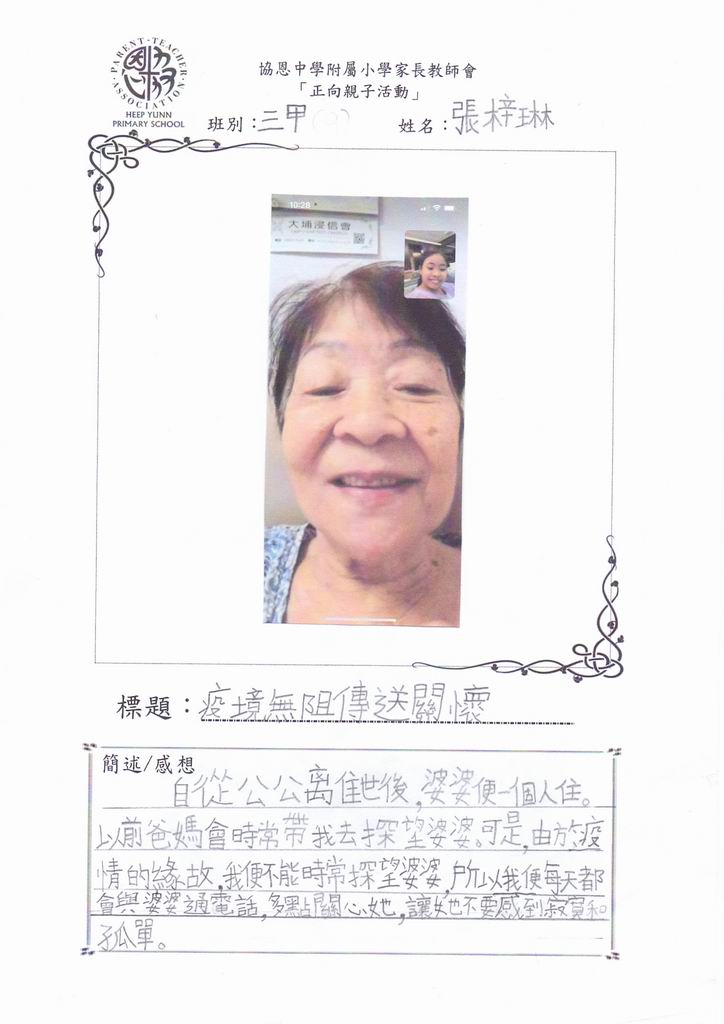 PARENT-TEACHER ASSOCIATION
HEEP YUNN
PRIMARY SCHOOL
協恩中學附屬小學家長教師會
「正向親子活動」
班別：三甲
姓名：張梓琳
10:28
大埔浸信會
標題：疫境無阻傳送關懷
簡述/感想
自從公公离世後，婆婆便一個人住。
以前爸媽會時常帶我去探望婆婆。可是，由於疫
情的緣故，我便不能時常探望婆婆，所以我便每天都
會與婆婆通電話，多點關心她，讓她不要感到寂寞和
孤單。